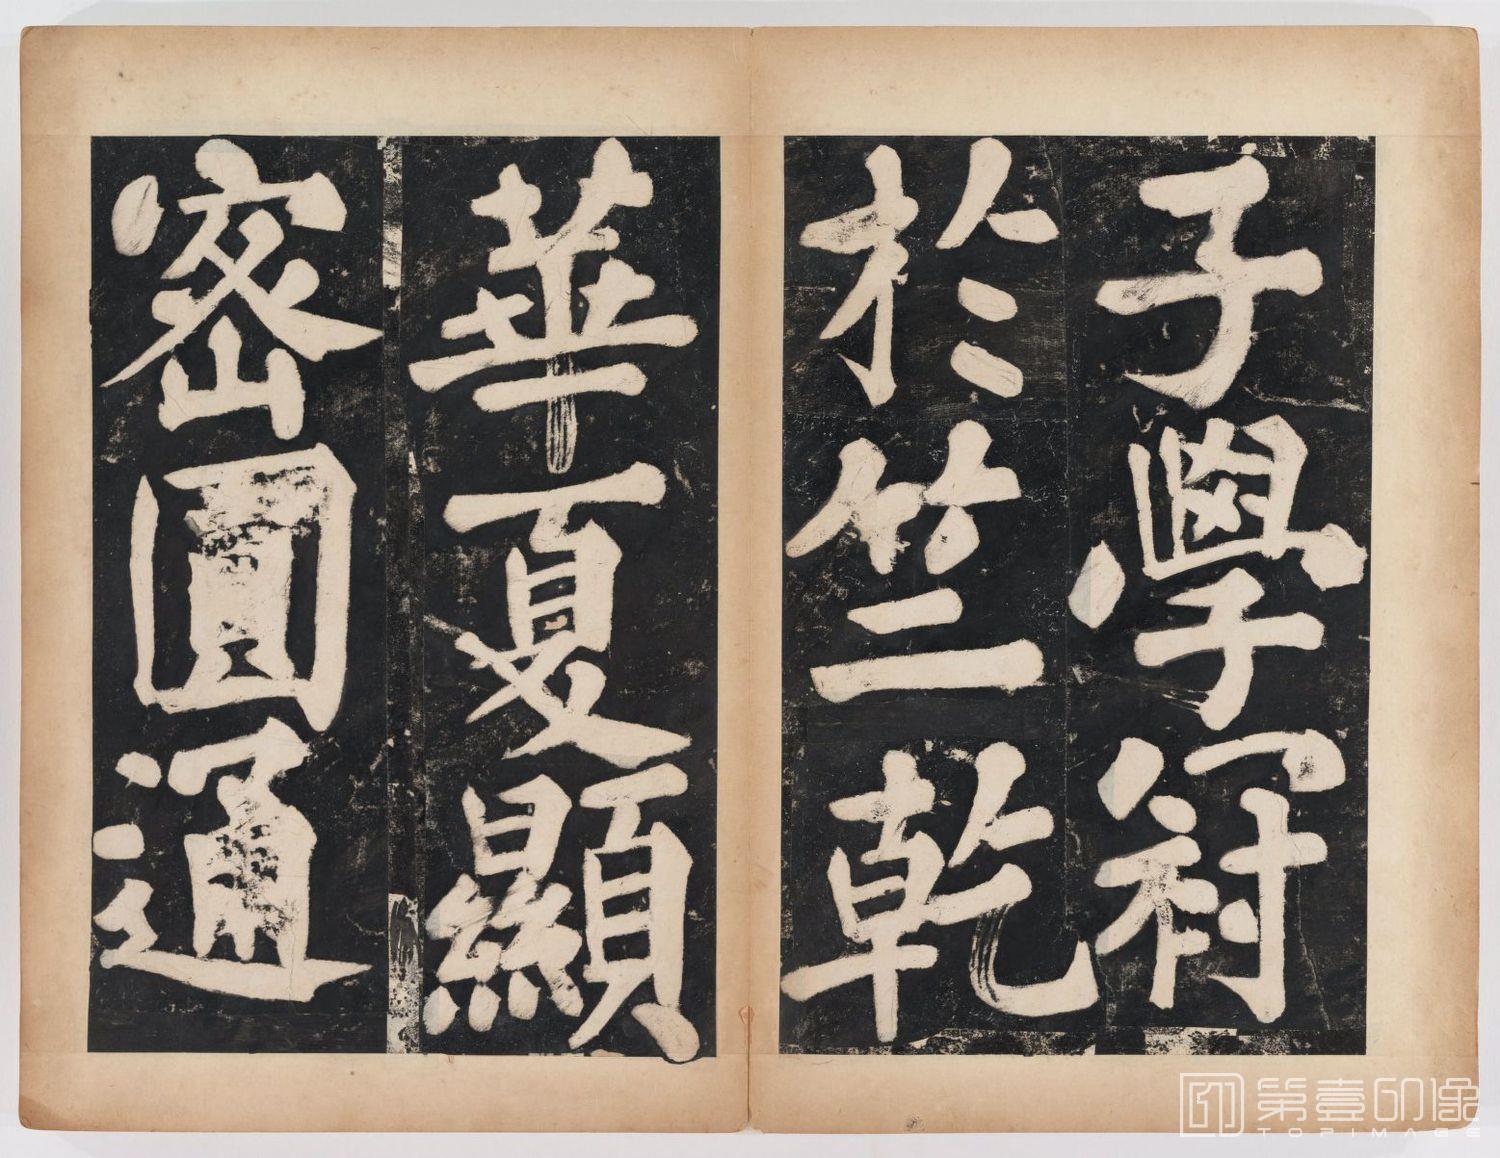 子學
於竺乾
華夏顯
密圓通
第壹印像
TOPIMAGE